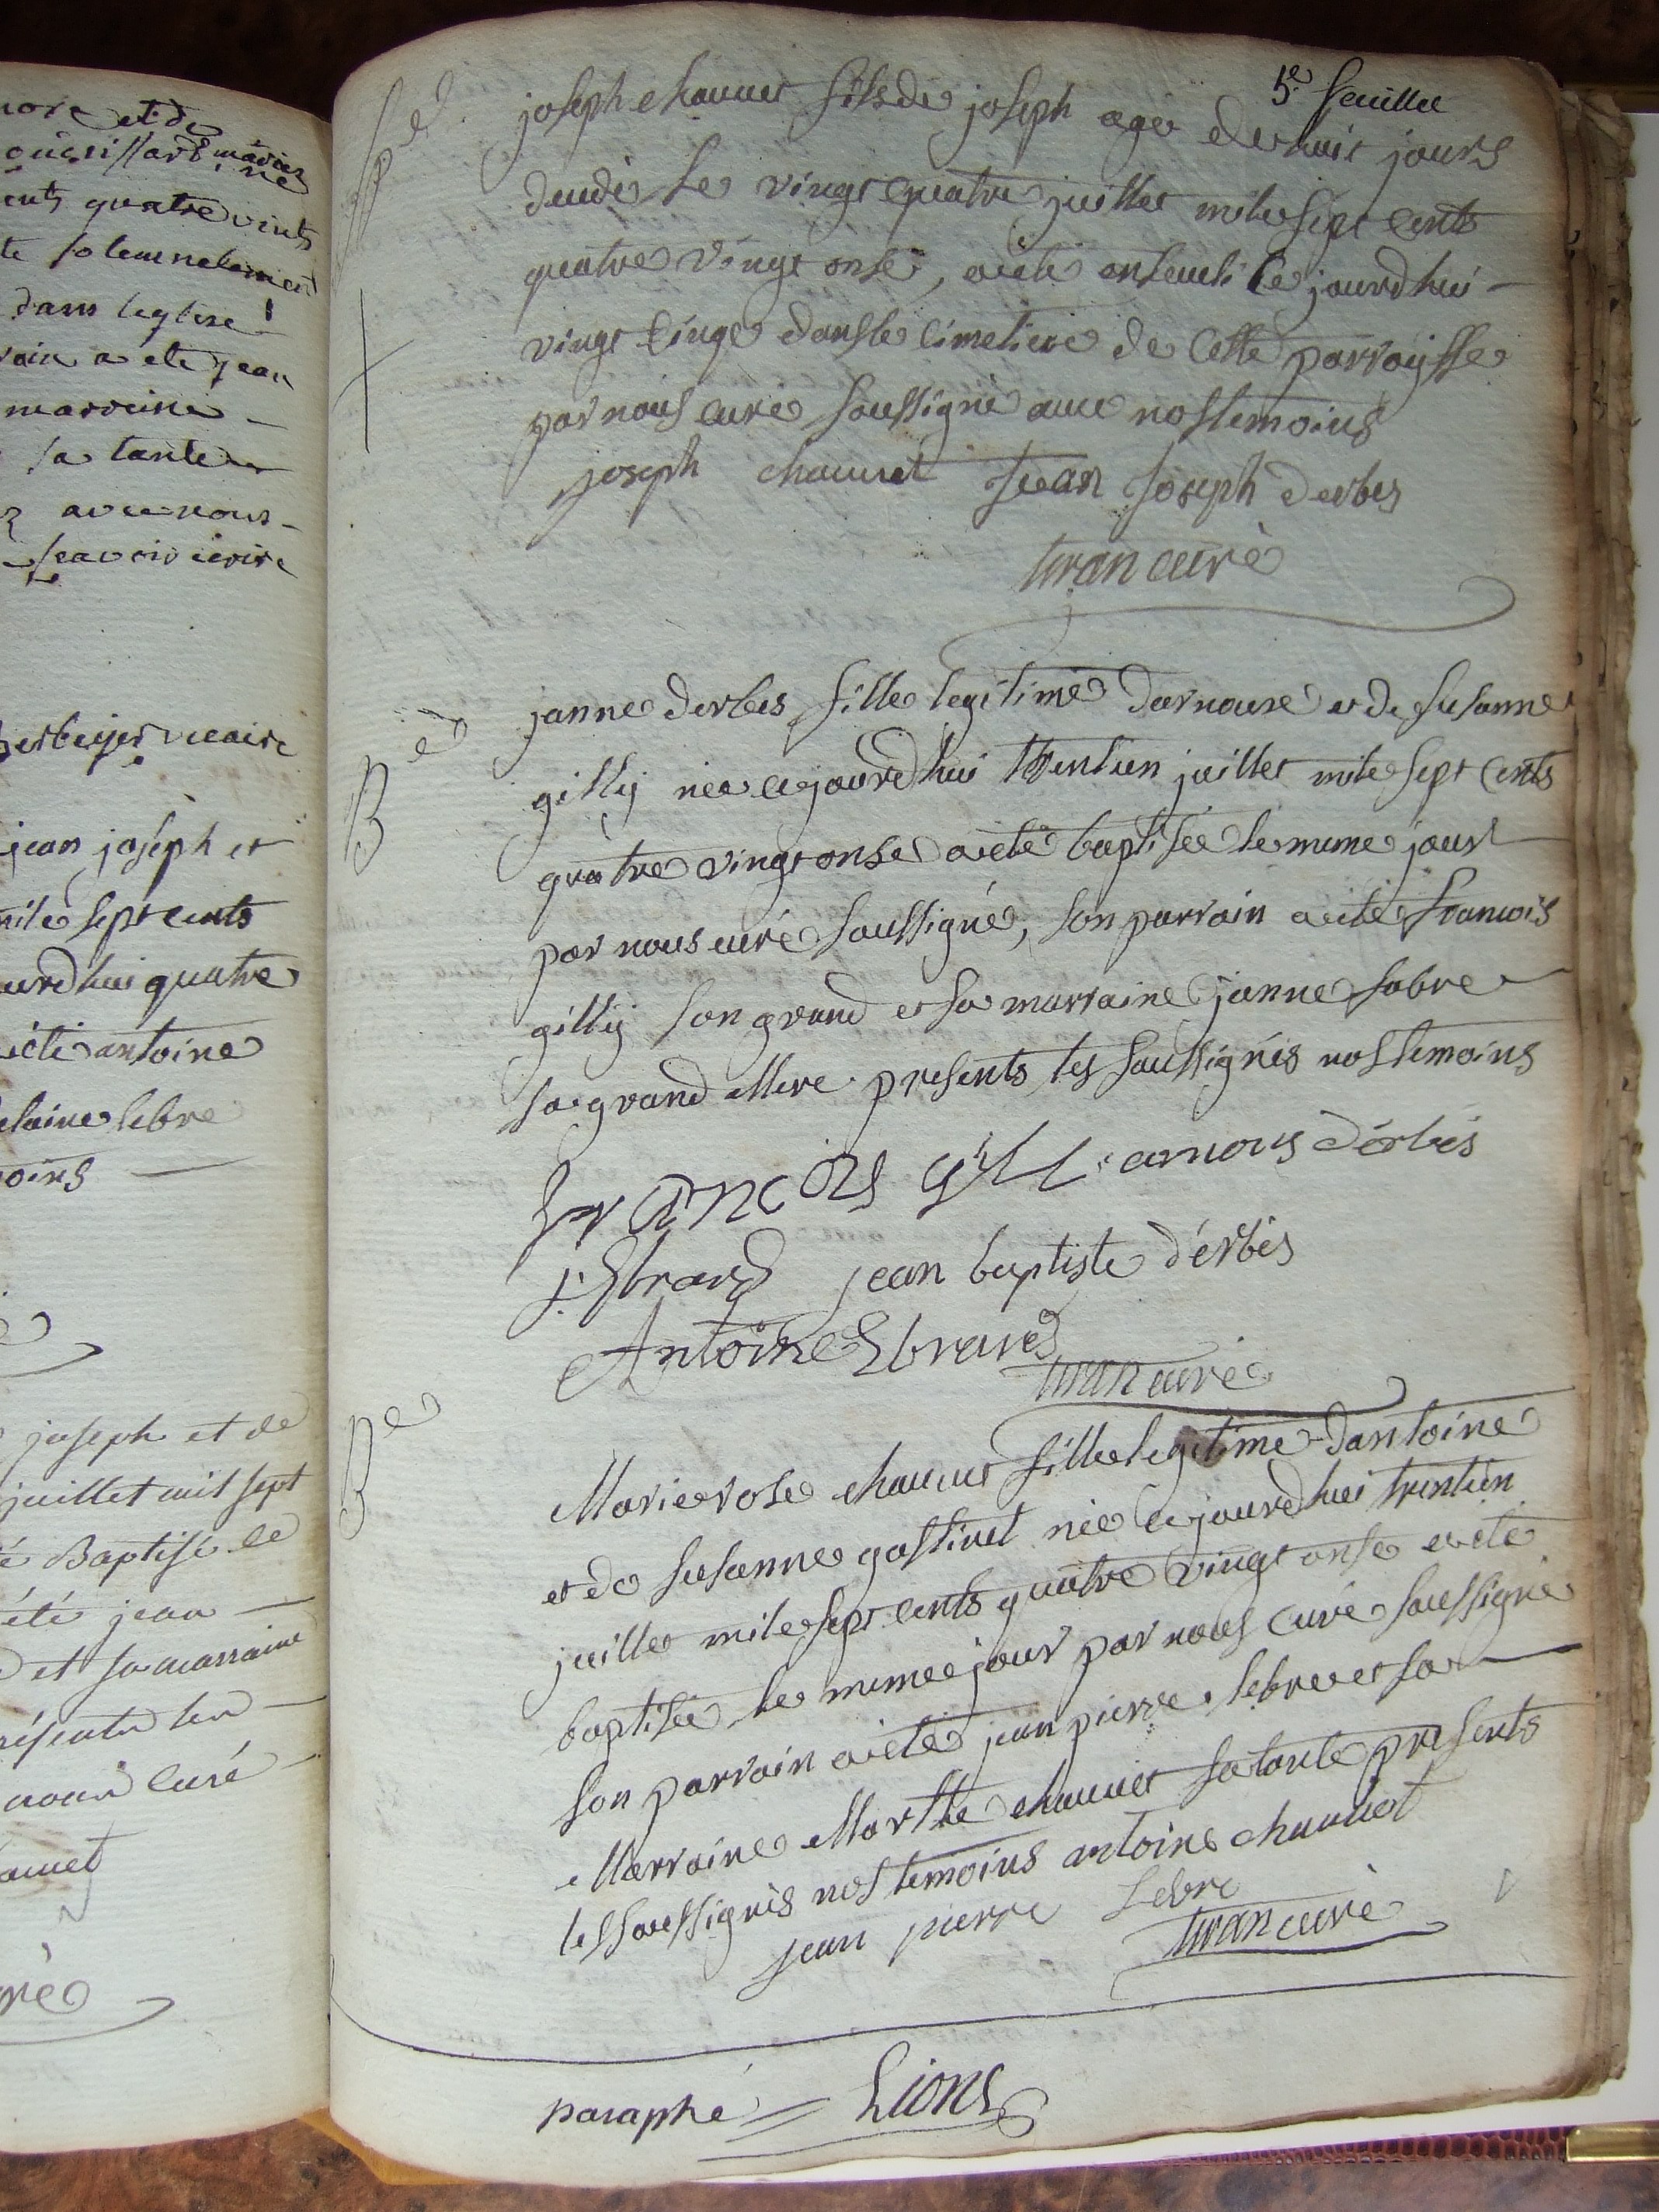 nore et de
mariez
ents quatre vints
te solemnelement
dans leglise
rain a ete jean
marreine
sa tante
avec nous
scavoir ecrire
vicaire
jean joseph et
mile sept cents
ourdhui quatre
été antoine
elaine lebre
moins
joseph et de
juillet mil sept
é Baptisé le
été jean
et sa marraine
nous curé
auvet
5e feuillet
joseph chauvet fils de joseph agé de huit jours
decedé le vingt quatre juillet mile sept cents
quatre vingt onse, a eté enseveli ce jourdhui
vingt cinq dans le cimetiere de cette parroysse
par nous curé soussigné avec nos temoins
joseph chauvet Jean Joseph derbes
turan curé
Be
janne derbes fille legitime darnoux et de susanne
gilly née cejourdhui trentun juillet mile sept cents
quatre vingt onse a eté baptisée le mème jour
par nous curé soussigné, son parrain a eté francois
gilly son grand et sa marraine janne fabre
sa grand Mere presents les soussignés nos temoins
francois gilli arnous dérbés
j: Ebrard jean baptiste dérbés
Antoine Ebrard
turan curé
Be
Marie rose chauvet fille legitime dantoine
et de susanne gastinel née ce jourdhui trentun
juillet mile sept cents quatre vingt onse a eté
baptisée le mème jour par nous curé soussigné
son parrain a eté jean pierre lebre et sa
Marraine Marthe chauvet sa tante presents
les soussignés nos temoins antoine chauvet
jean pierre Lebre
turan curé
paraphé Lions